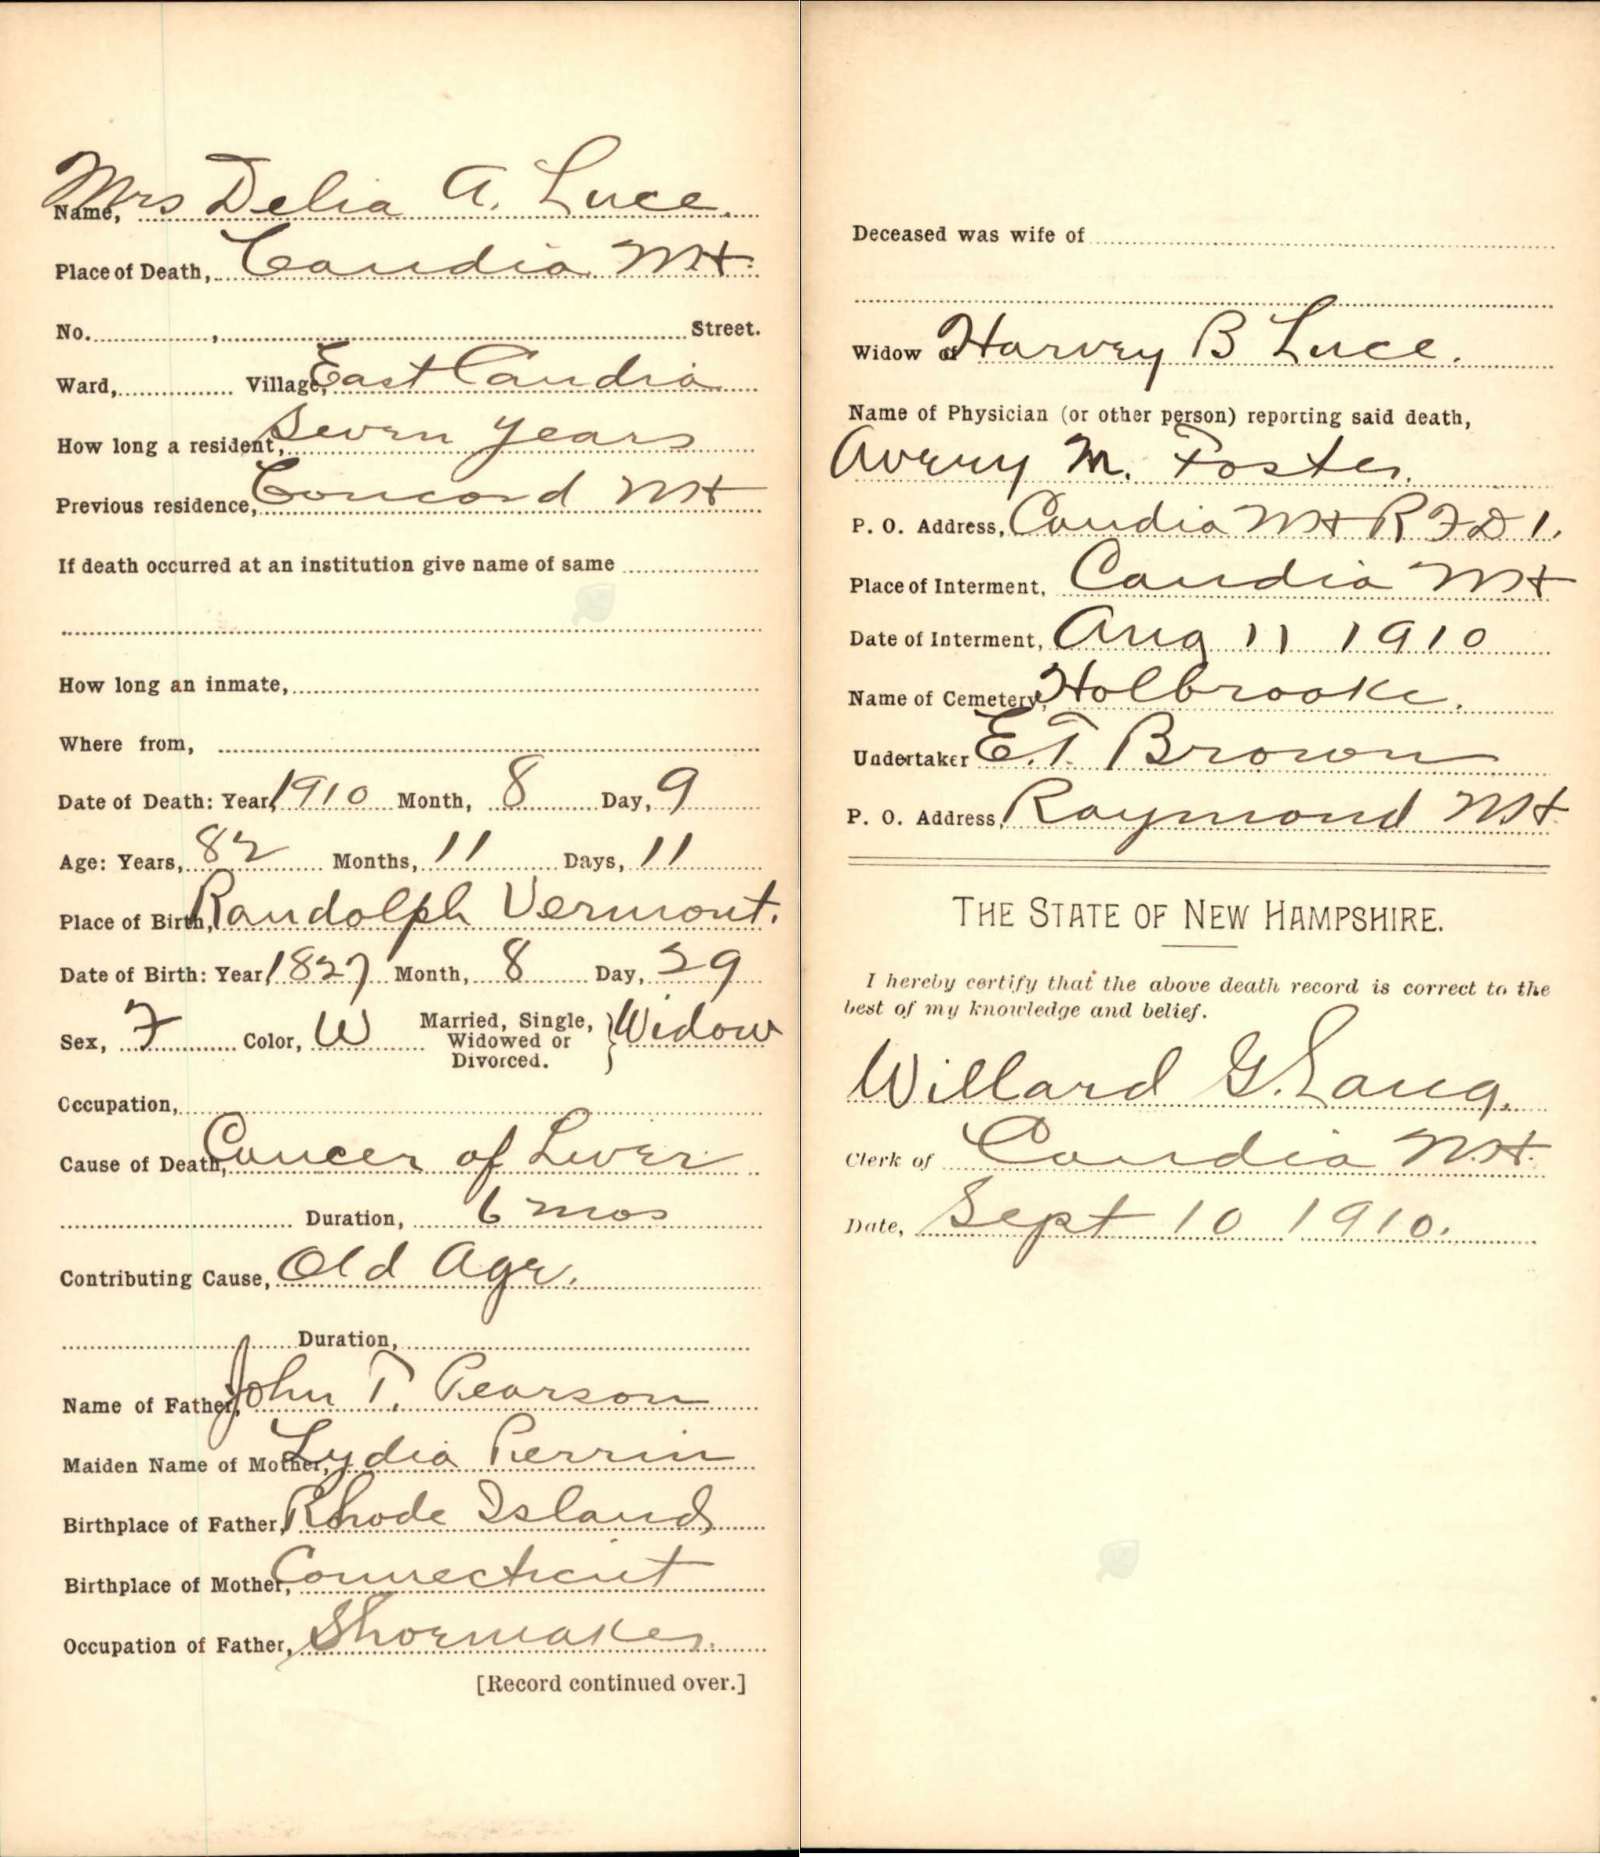 Name, Mrs Delia A. Luce.
Place of Death, Candia NH.
No. , Street.
Ward, Village, East Candia
How long a resident, Seven years
Previous residence, Concord NH
If death occurred at an institution give name of same
How long an inmate,
Where from,
Date of Death: Year, 1910 Month, 8 Day, 9
Age: Years, 82 Months, 11 Days, 11
Place of Birth, Randolph Vermont.
Date of Birth: Year, 1827 Month, 8 Day, 29
Sex, F Color, W Married, Single, Widowed or Divorced. } Widow
Occupation,
Cause of Death, Cancer of Liver
Duration, 6 mos
Contributing Cause, Old Age.
Duration,
Name of Father, John T. Pearson
Maiden Name of Mother, Lydia Perrin
Birthplace of Father, Rhode Island
Birthplace of Mother, Connecticut
Occupation of Father, Shoemaker.
[Record continued over.]
Deceased was wife of
Widow of Harvey B Luce.
Name of Physician (or other person) reporting said death,
Avery M. Foster.
P. O. Address, Candia NH R F D 1.
Place of Interment, Candia NH
Date of Interment, Aug 11 1910
Name of Cemetery, Holbrooke.
Undertaker E. T. Brown
P. O. Address, Raymond NH.
THE STATE OF NEW HAMPSHIRE.
I hereby certify that the above death record is correct to the
best of my knowledge and belief.
Willard G. Lang.
Clerk of Candia N.H.
Date, Sept 10 1910.